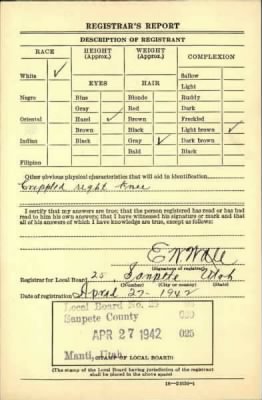 REGISTRAR'S REPORT
DESCRIPTION OF REGISTRANT
RACE HEIGHT (Approx.) WEIGHT (Approx.) COMPLEXION
White ✓ Sallow
EYES HAIR Light
Negro Blue Blonde Ruddy
Gray Red Dark
Oriental Hazel ✓ Brown Freckled
Brown Black Light brown ✓
Indian Black Gray ✓ Dark brown
Bald Black
Filipino
Other obvious physical characteristics that will aid in identification
Crippled right knee
I certify that my answers are true; that the person registered has read or has had
read to him his own answers; that I have witnessed his signature or mark and that
all of his answers of which I have knowledge are true, except as follows:
(Signature of registrar)
Registrar for Local Board 25 Sanpete Utah
(Number) (City or county) (State)
Date of registration April 27 - 1942
Local Board No. 25
Sanpete County
APR 27 1942 025
Manti, Utah
(STAMP OF LOCAL BOARD)
(The stamp of the Local Board having jurisdiction of the registrant
shall be placed in the above space)